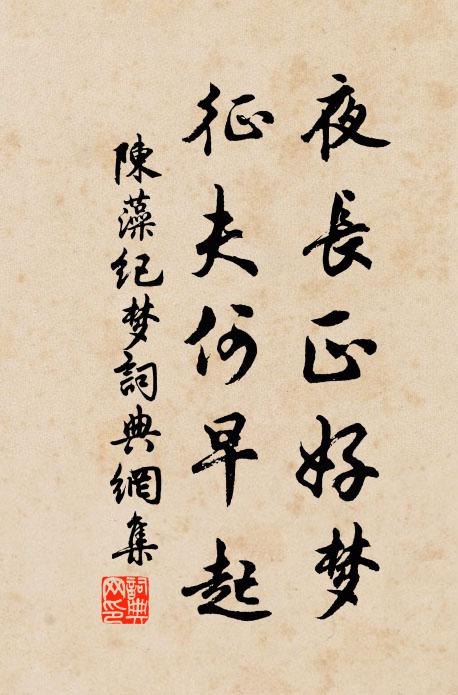 夜長正好梦
征夫何早起
陳藻纪梦詞典網集
詞典网印